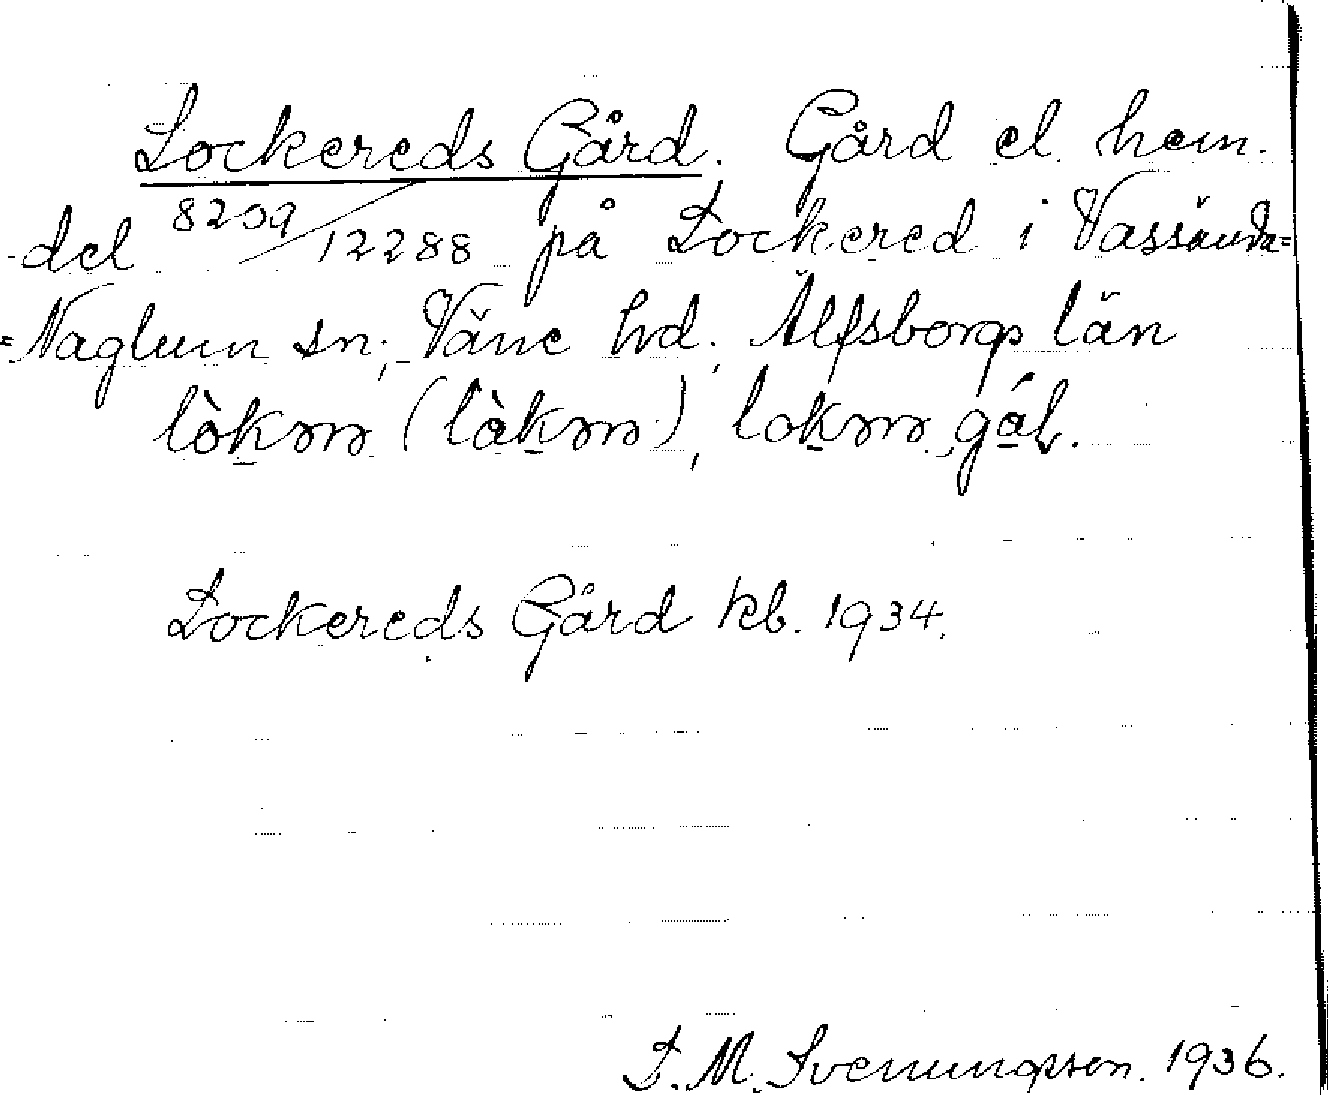 Lockereds Gård. Gård el. hem-
-del 8209/12288 på Lockered i Vassända=
=Naglum sn, Väne hd, Älfsborgs län
Lockereds Gård kb. 1934.
L. M. Svenungsson. 1936.